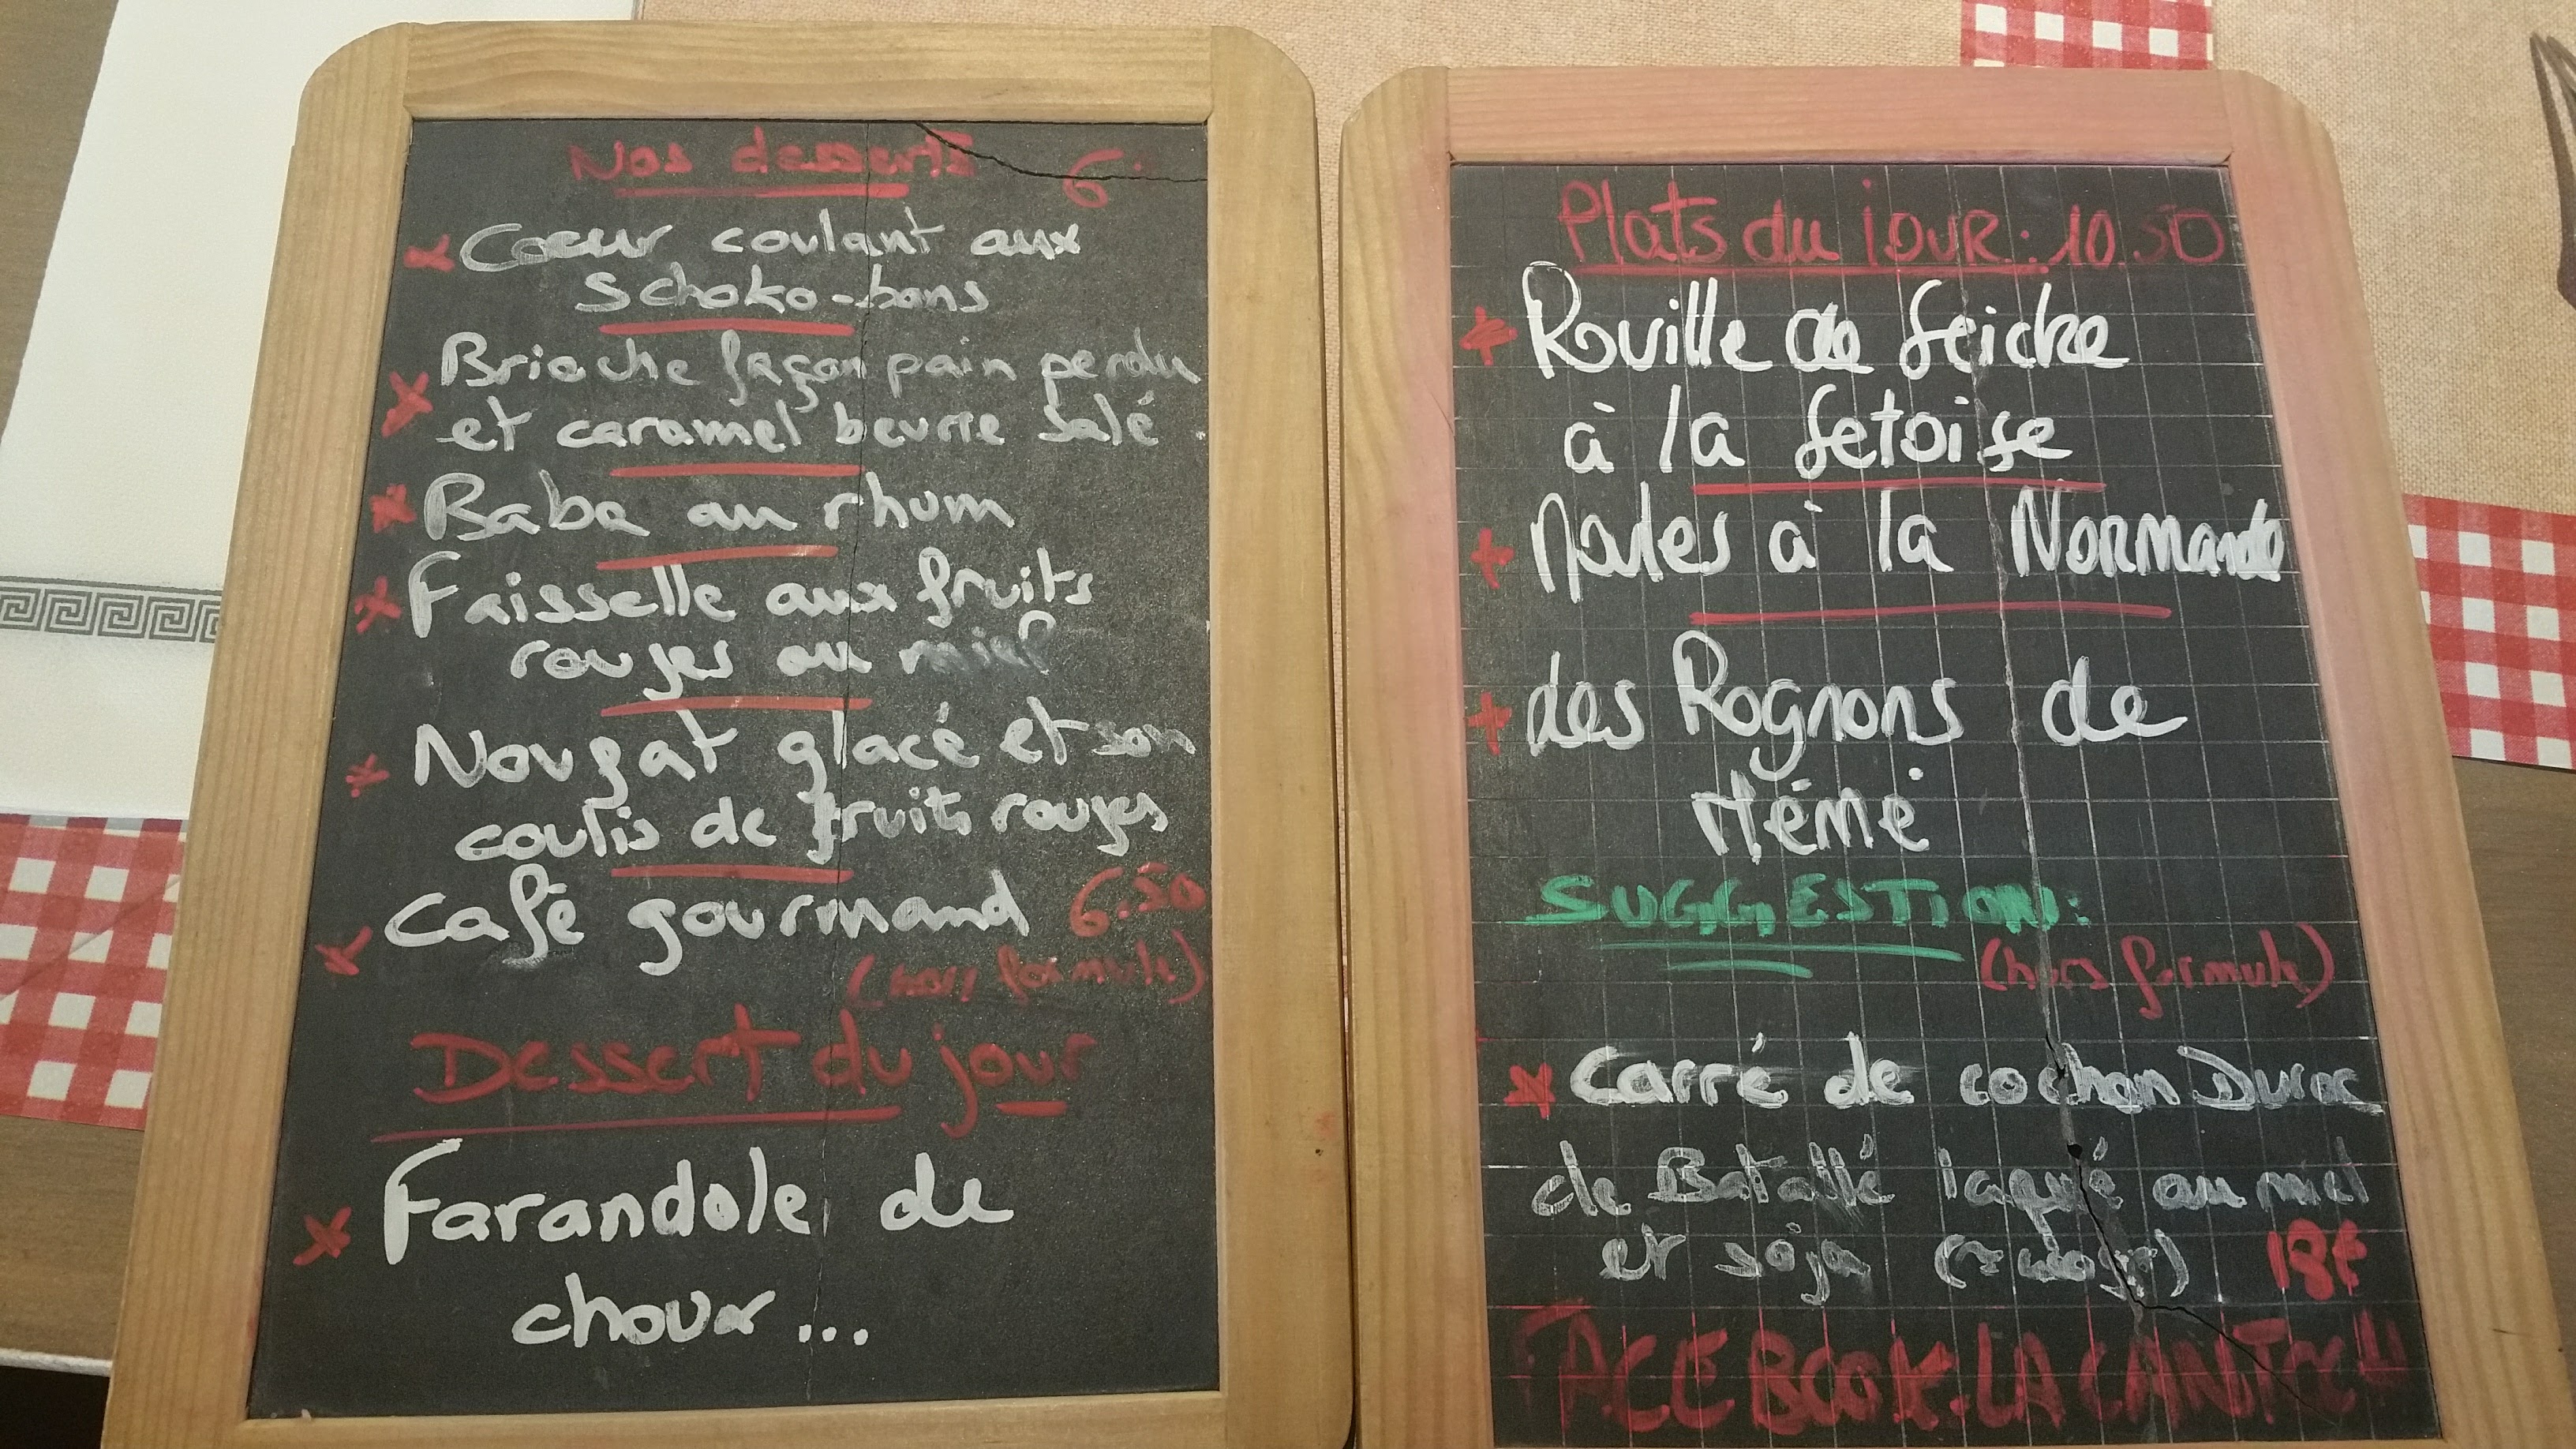 Nos desserts 6.
Coeur coulant aux
Schoko-bons
Brioche façon pain perdu
et caramel beurre salé
Baba au rhum
Faisselle aux fruits
rouges ou miel
Nougat glacé et son
coulis de fruits rouges
Café gourmand 6.50
(hors formule)
Dessert du jour
Farandole de
choux...
Plats du jour: 10.50
Rouille de seiche
à la setoise
Moules à la Normande
des Rognons de
Mémé
SUGGESTION:
(hors formule)
Carré de cochon Duroc
de Batallé laqué au miel
et soja 18€
FACEBOOK:LA CANTOCH